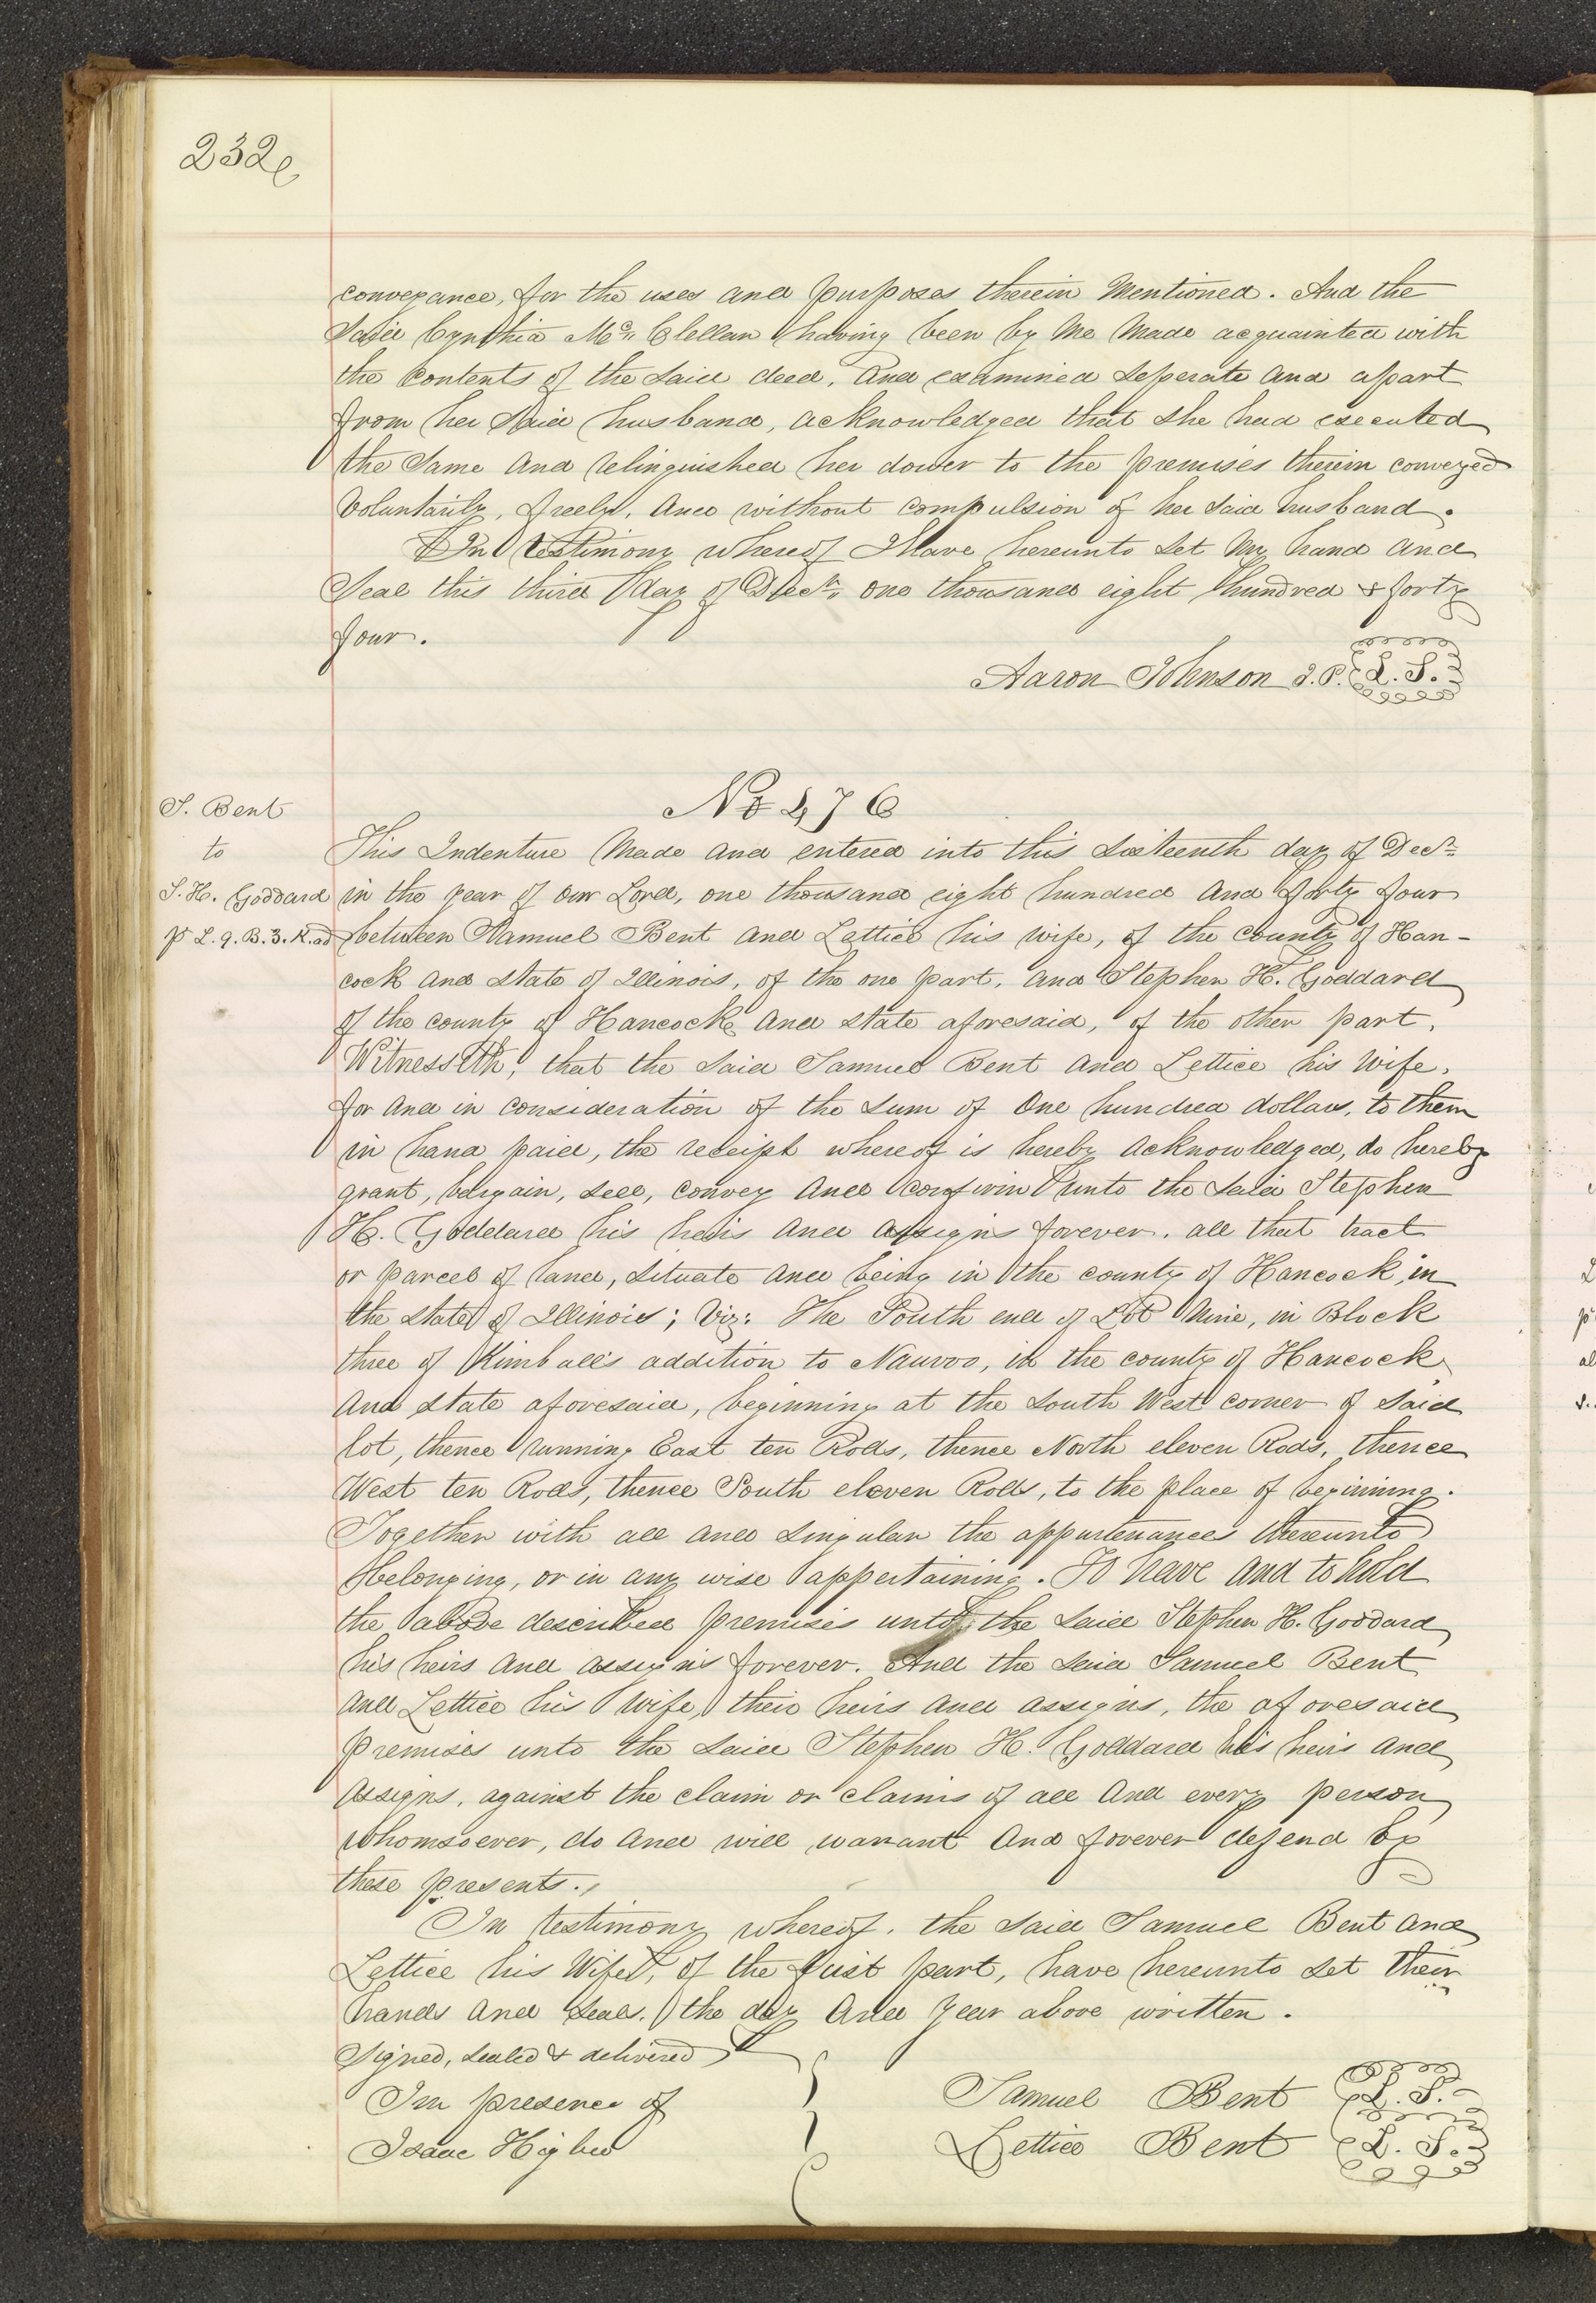 232
conveyance, for the uses and purposes therein Mentioned. And the
Said Cynthia Mc Clellan having been by Me Made acquainted with
the Contents of the Said deed, And examined Seperate and apart
from her Said husband, acknowledged that She had executed
the Same And relinquished her dower to the premises therein conveyed
Voluntarily, freely, And without compulsion of her Said husband.
In Testimony whereof I Have hereunto Set My hand and
Seal this third day of Decr. one thousand eight hundred & forty
four.
Aaron Johnson J.P. L.S.
No 476
S. Bent
to
S.H. Goddard
pt L. 9. B. 3. K. ad
This Indenture Made and entered into this Sixteenth day of Decr.
in the year of our Lord, one thousand eight hundred And forty four
between Samuel Bent and Lettice his wife, of the County of Han-
cock and State of Illinois, of the one part, and Stephen H. Goddard
of the county of Hancock and State aforesaid, of the other part,
Witnesseth, that the Said Samuel Bent and Lettice his Wife,
for And in Consideration of the Sum of One hundred dollars, to them
in hand paid, the receipt whereof is hereby Acknowledged, do hereby
grant, bargain, Sell, Convey And Confirm unto the Said Stephen
H. Goddard his heirs and assigns forever, all that tract
or parcel of land, Situate And being in the county of Hancock, in
the State of Illinois; Viz: The South end of Lot Nine, in Block
three of Kimball's addition to Nauvoo, in the county of Hancock
And State aforesaid, beginning at the South West corner of Said
lot, thence running East ten Rods, thence North eleven Rods, thence
West ten Rods, thence South eleven Rods, to the place of beginning.
Together with all and Singular the appurtenances thereunto
belonging, or in any wise appertaining. To have and to hold
the above described premises unto the Said Stephen H. Goddard
his heirs and assigns forever. And the Said Samuel Bent
and Lettice his Wife, their heirs and assigns, the aforesaid
Premises unto the Said Stephen H. Goddard his heirs and
Assigns, against the claim or claims of all And every person
Whomsoever, do and will warrant And forever defend by
these presents.
In testimony whereof, the Said Samuel Bent and
Lettice his Wife, of the first part, have hereunto Set their
hands and Seals, the day And Year above written.
Signed, Sealed & delivered
In presence of
Isaac Higbee
Samuel Bent L.S.
Lettice Bent L.S.